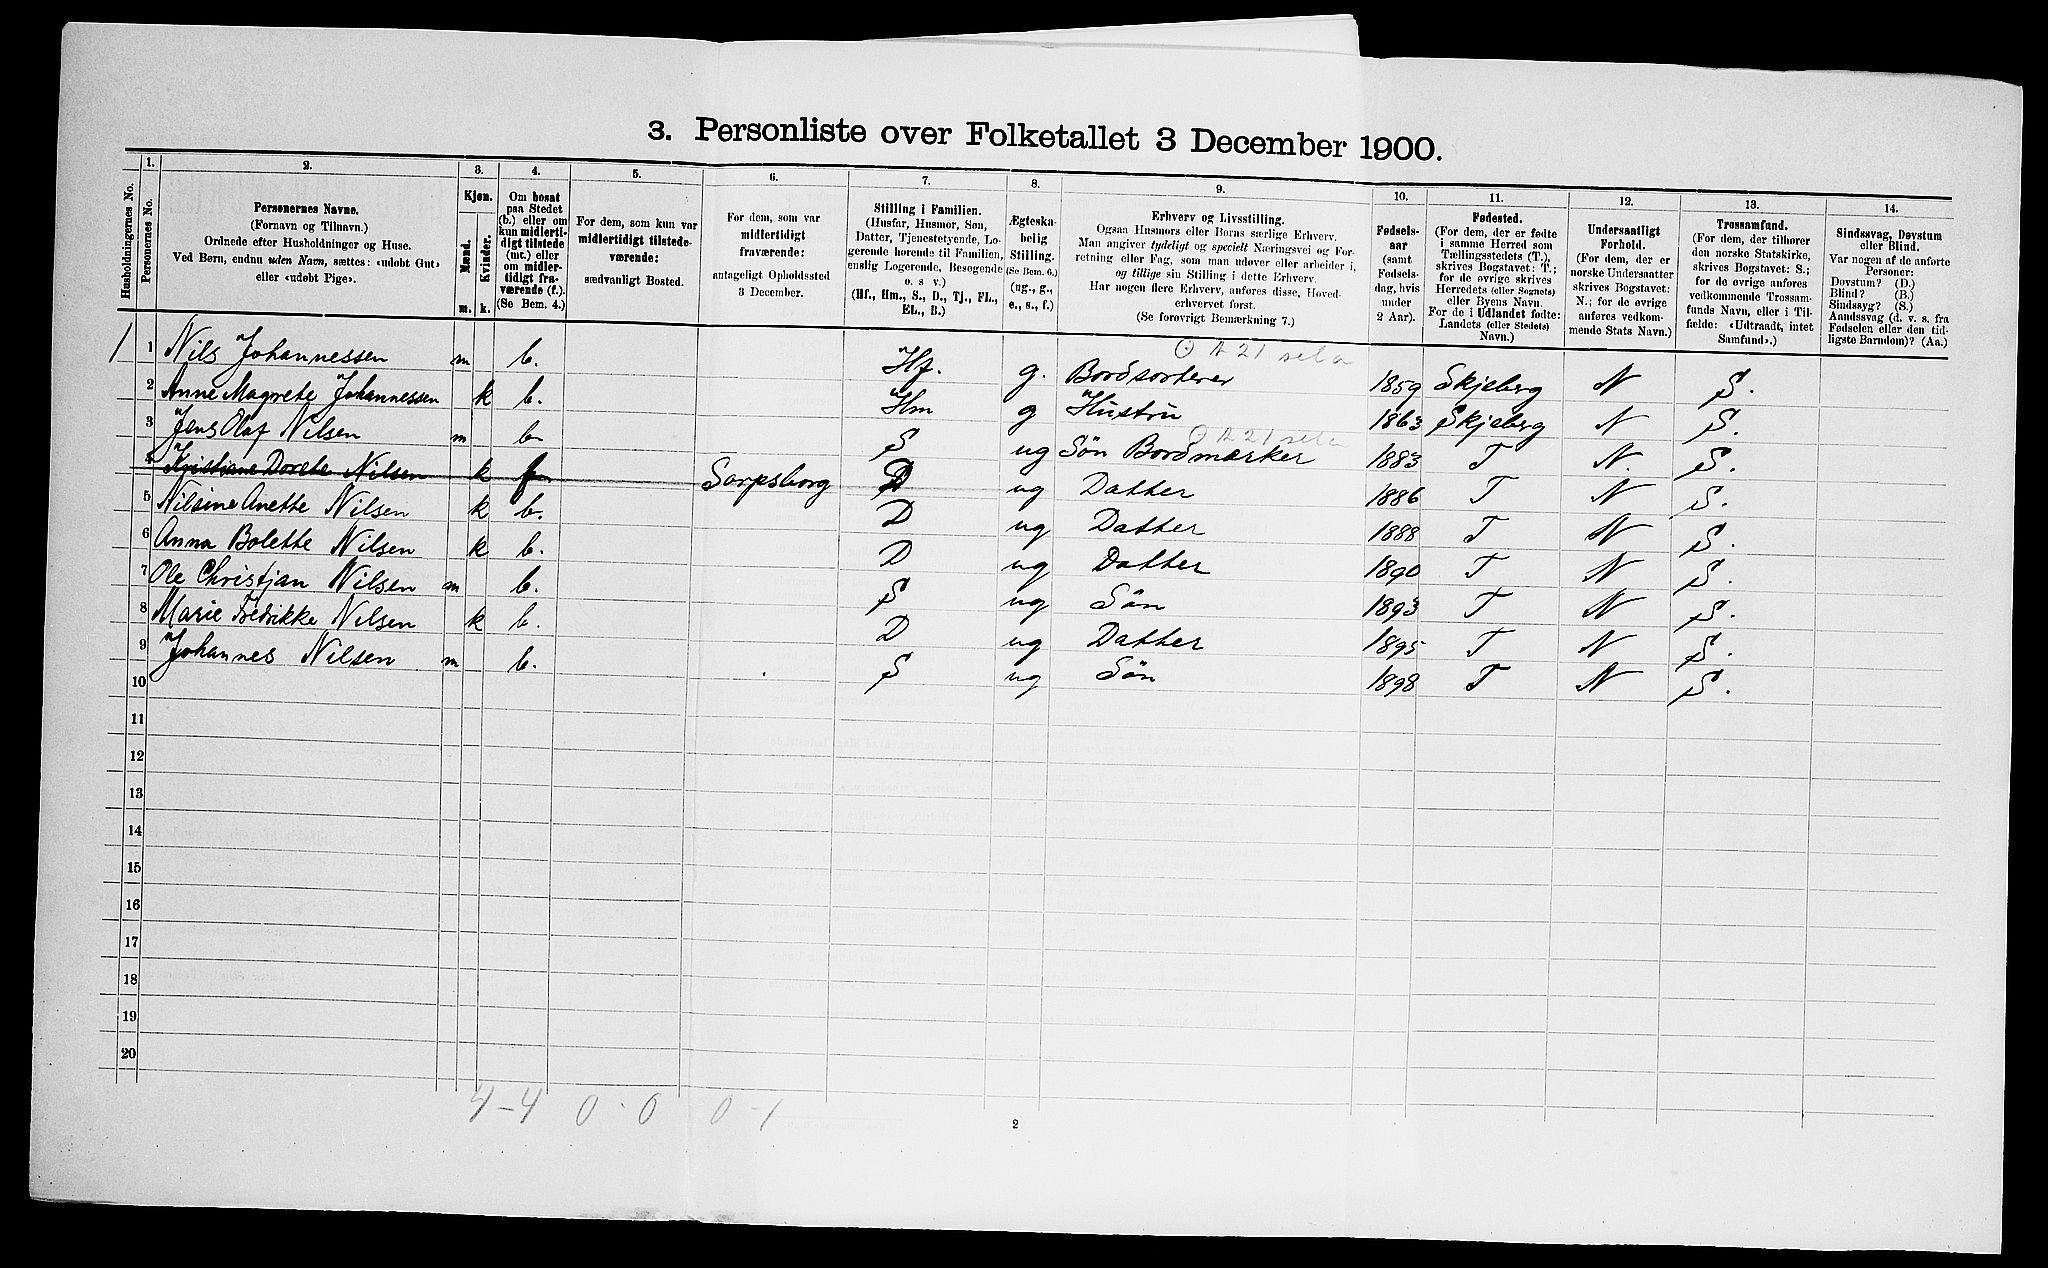 3. Personliste over Folketallet 3 December 1900.
Husholdningernes No.
1. Personernes No.
2. Personernes Navne.
(Fornavn og Tilnavn.)
Ordnede efter Husholdninger og Huse.
Ved Børn, endnu uden Navn, sættes: «udøbt Gut»
eller «udøbt Pige».
3. Kjøn.
Mænd. Kvinder.
m. k.
4. Om bosat
paa Stedet
(b.) eller om
kun midlerti-
digt tilstede
(mt.) eller
om midler-
tidigt fra-
værende (f.).
(Se Bem. 4.)
5. For dem, som kun var
midlertidigt tilstede-
værende:
sædvanligt Bosted.
6. For dem, som var
midlertidigt
fraværende:
antageligt Opholdssted
3 December.
7. Stilling i Familien.
(Husfar, Husmor, Søn,
Datter, Tjenestetyende, Lo-
gerende hørende til Familien,
enslig Logerende, Besøgende
o. s. v.)
(Hf., Hm., S., D., Tj., FL.,
EL., B.)
8. Ægteska-
belig
Stilling.
(Se Bem. 6.)
(ug., g.,
e., s., f.)
9. Erhverv og Livsstilling.
Ogsaa Husmors eller Børns særlige Erhverv.
Man angiver tydeligt og specielt Næringsvei og For-
retning eller Fag, som man udøver eller arbeider i,
og tillige sin Stilling i dette Erhverv.
Har nogen flere Erhverv, anføres disse, Hoved-
erhvervet først.
(Se forøvrigt Bemærkning 7.)
10. Fødsels-
aar
(samt
Fødsels-
dag, hvis
under
2 Aar).
11. Fødested.
(For dem, der er fødte
i samme Herred som
Tællingsstedets (T.),
skrives Bogstavet: T.;
for de øvrige skrives
Herredets (eller Sognets)
eller Byens Navn.
For de i Udlandet fødte:
Landets (eller Stedets)
Navn.)
12. Undersaatligt
Forhold.
(For dem, der er
norske Undersaatter
skrives Bogstavet:
N.; for de øvrige
anføres vedkom-
mende Stats Navn.)
13. Trossamfund.
(For dem, der tilhører
den norske Statskirke,
skrives Bogstavet: S.;
for de øvrige anføres
vedkommende Trossam-
funds Navn, eller i Til-
fælde: «Udtraadt, intet
Samfund».)
14. Sindssvag, Døvstum
eller Blind.
Var nogen af de anførte
Personer:
Døvstum? (D.)
Blind? (B.)
Sindssyg? (S.)
Aandssvag (d. v. s. fra
Fødselen eller den tid-
ligste Barndom)? (Aa.)
1 1 Nils Johannessen m b. Hf. g. Bordsorterer 1859 Skjeberg N S.
2 Anne Magrete Johannessen k b. Hm g Hustru 1863 Skjeberg N S.
3 Jens Olaf Nilsen m b S ug Søn Bordmærker 1883 T N. S.
4 Kristiane Dorete Nilsen k f Sarpsborg D ug Datter 1886 T N S.
5 Nilsine Anette Nilsen k b. D ug Datter 1888 T N S.
6 Anna Bolette Nilsen k b. D ug Datter 1890 T N S.
7 Ole Christjan Nilsen m b. S ug Søn 1893 T N S.
8 Marie Fredrikke Nilsen k b. D ug Datter 1895 T N S.
9 Johannes Nilsen m b. S ug Søn 1898 T N S.
10
11
12
13
14
15
16
17
18
19
20
4-4 0-0 0-1
2